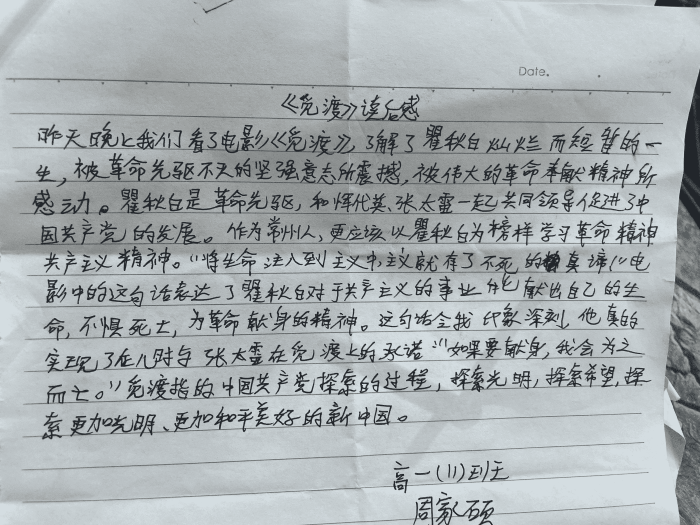 Date.
《觅渡》读后感
昨天晚上我们看了电影《觅渡》,了解了瞿秋白灿烂而短暂的一
生,被革命先驱不灭的坚强意志所震撼,被伟大的革命奉献精神所
感动。瞿秋白是革命先驱,和恽代英、张太雷一起共同领导促进了中
国共产党的发展。作为常州人,更应该以瞿秋白为榜样学习革命精神
共产主义精神。“将生命注入到主义中,主义就有了不死的真谛。”电
影中的这句话表达了瞿秋白对于共产主义的事业能献出自己的生
命,不惧死亡,为革命献身的精神。这句话令我印象深刻,他真的
实现了在儿时与张太雷在觅渡上的承诺“如果要献身,我会为之
而亡。”觅渡指的中国共产党探索的过程,探索光明,探索希望,探
索更加光明、更加和平美好的新中国。
高一(11)班
周家硕